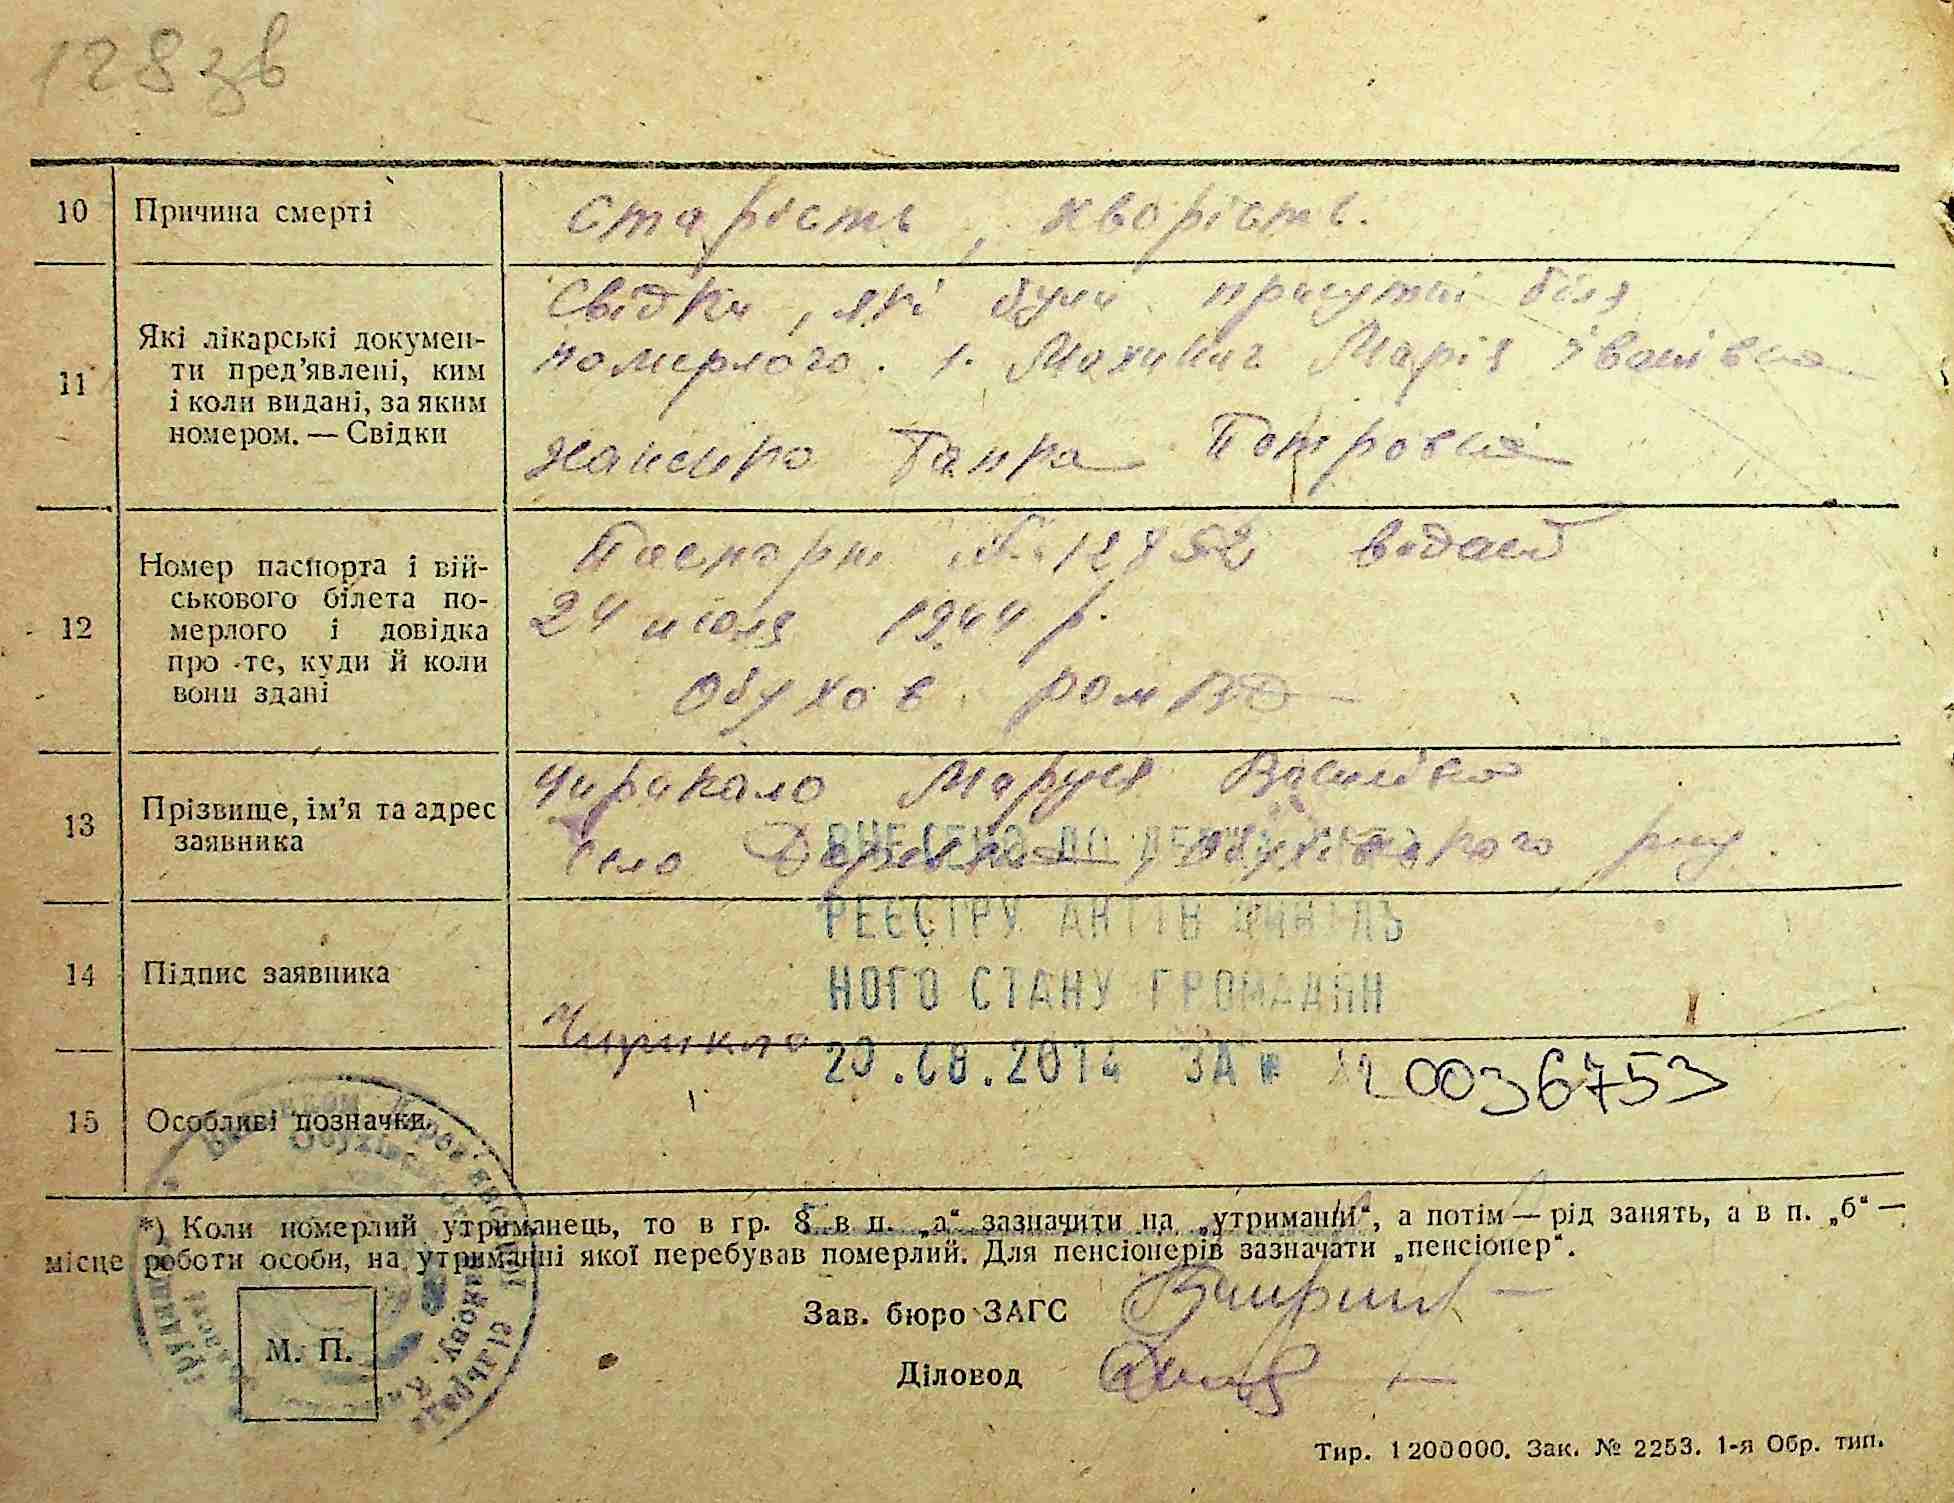 128 зв
10 Причина смерті
Старість, хворість.
11 Які лікарські докумен-
ти пред’явлені, ким
і коли видані, за яким
номером. — Свідки
Свідки, які були присутні біля
померлого. 1. Марія Іванівна
Ганна Петровна
12 Номер паспорта і вій-
ськового білета по-
мерлого і довідка
про те, куди й коли
вони здані
Паспорт № 12852 видан
24 июля 1944 р.
Обухов
13 Прізвище, ім’я та адрес
заявника
Чирикало Маруся
село Обухівського р-ну.
ВНЕСЕНО ДО ДЕРЖ
РЕЄСТРУ АКТІВ ЦИВІЛЬ
НОГО СТАНУ ГРОМАДЯН
20.08.2014 ЗА № 00036753
14 Підпис заявника
15 Особливі позначки
*) Коли померлий утриманець, то в гр. 8 в п. „а“ зазначити на „утриманні“, а потім — рід занять, а в п. „б“ —
місце роботи особи, на утриманні якої перебував померлий. Для пенсіонерів зазначати „пенсіонер“.
Зав. бюро ЗАГС
М. П.
Діловод
Тир. 1200000. Зак. № 2253. 1-я Обр. тип.